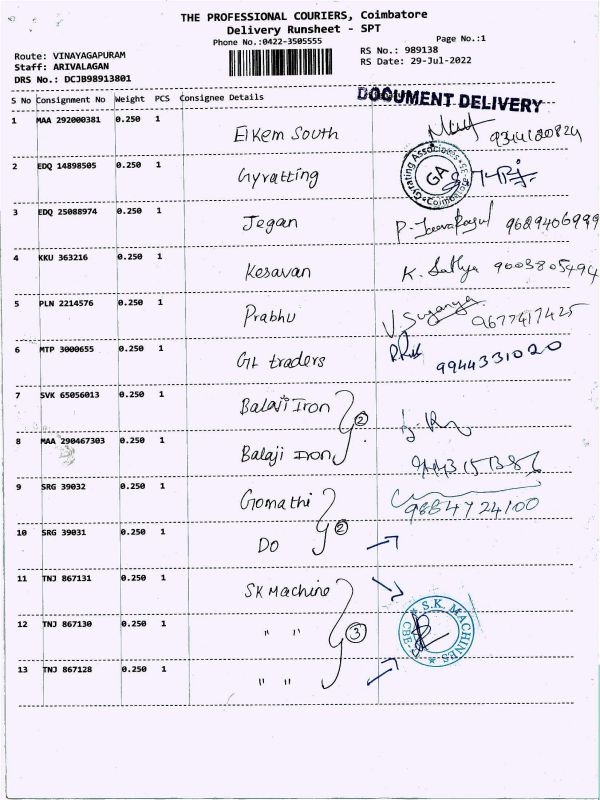 THE PROFESSIONAL COURIERS, Coimbatore
Delivery Runsheet - SPT
Phone No.:0422-3505555
Page No.:1
Route: VINAYAGAPURAM
Staff: ARIVALAGAN
DRS No.: DCJB98913801
RS No.: 989138
RS Date: 29-Jul-2022
S No Consignment No Weight PCS Consignee Details
DOCUMENT DELIVERY
1 MAA 292000381 0.250 1 Elkem South
2 EDQ 14898505 0.250 1 Gyratting
Gyrating Associates GA Coimbatore
3 EDQ 25088974 0.250 1 Jegan 9629406999
4 KKU 363216 0.250 1 Kesavan K. Sathya 9003805494
5 PLN 2214576 0.250 1 Prabhu V. Suganya 9677417425
6 MTP 3000655 0.250 1 GL traders 9944331020
7 SVK 65056013 0.250 1 Balaji Iron
2
8 MAA 290467303 0.250 1 Balaji Iron
9 SRG 39032 0.250 1 Gomathi 9884724100
2
10 SRG 39031 0.250 1 Do
11 TNJ 867131 0.250 1 SK Machine
12 TNJ 867130 0.250 1 " " 3
S.K. MACHINES CBE
13 TNJ 867128 0.250 1 " "